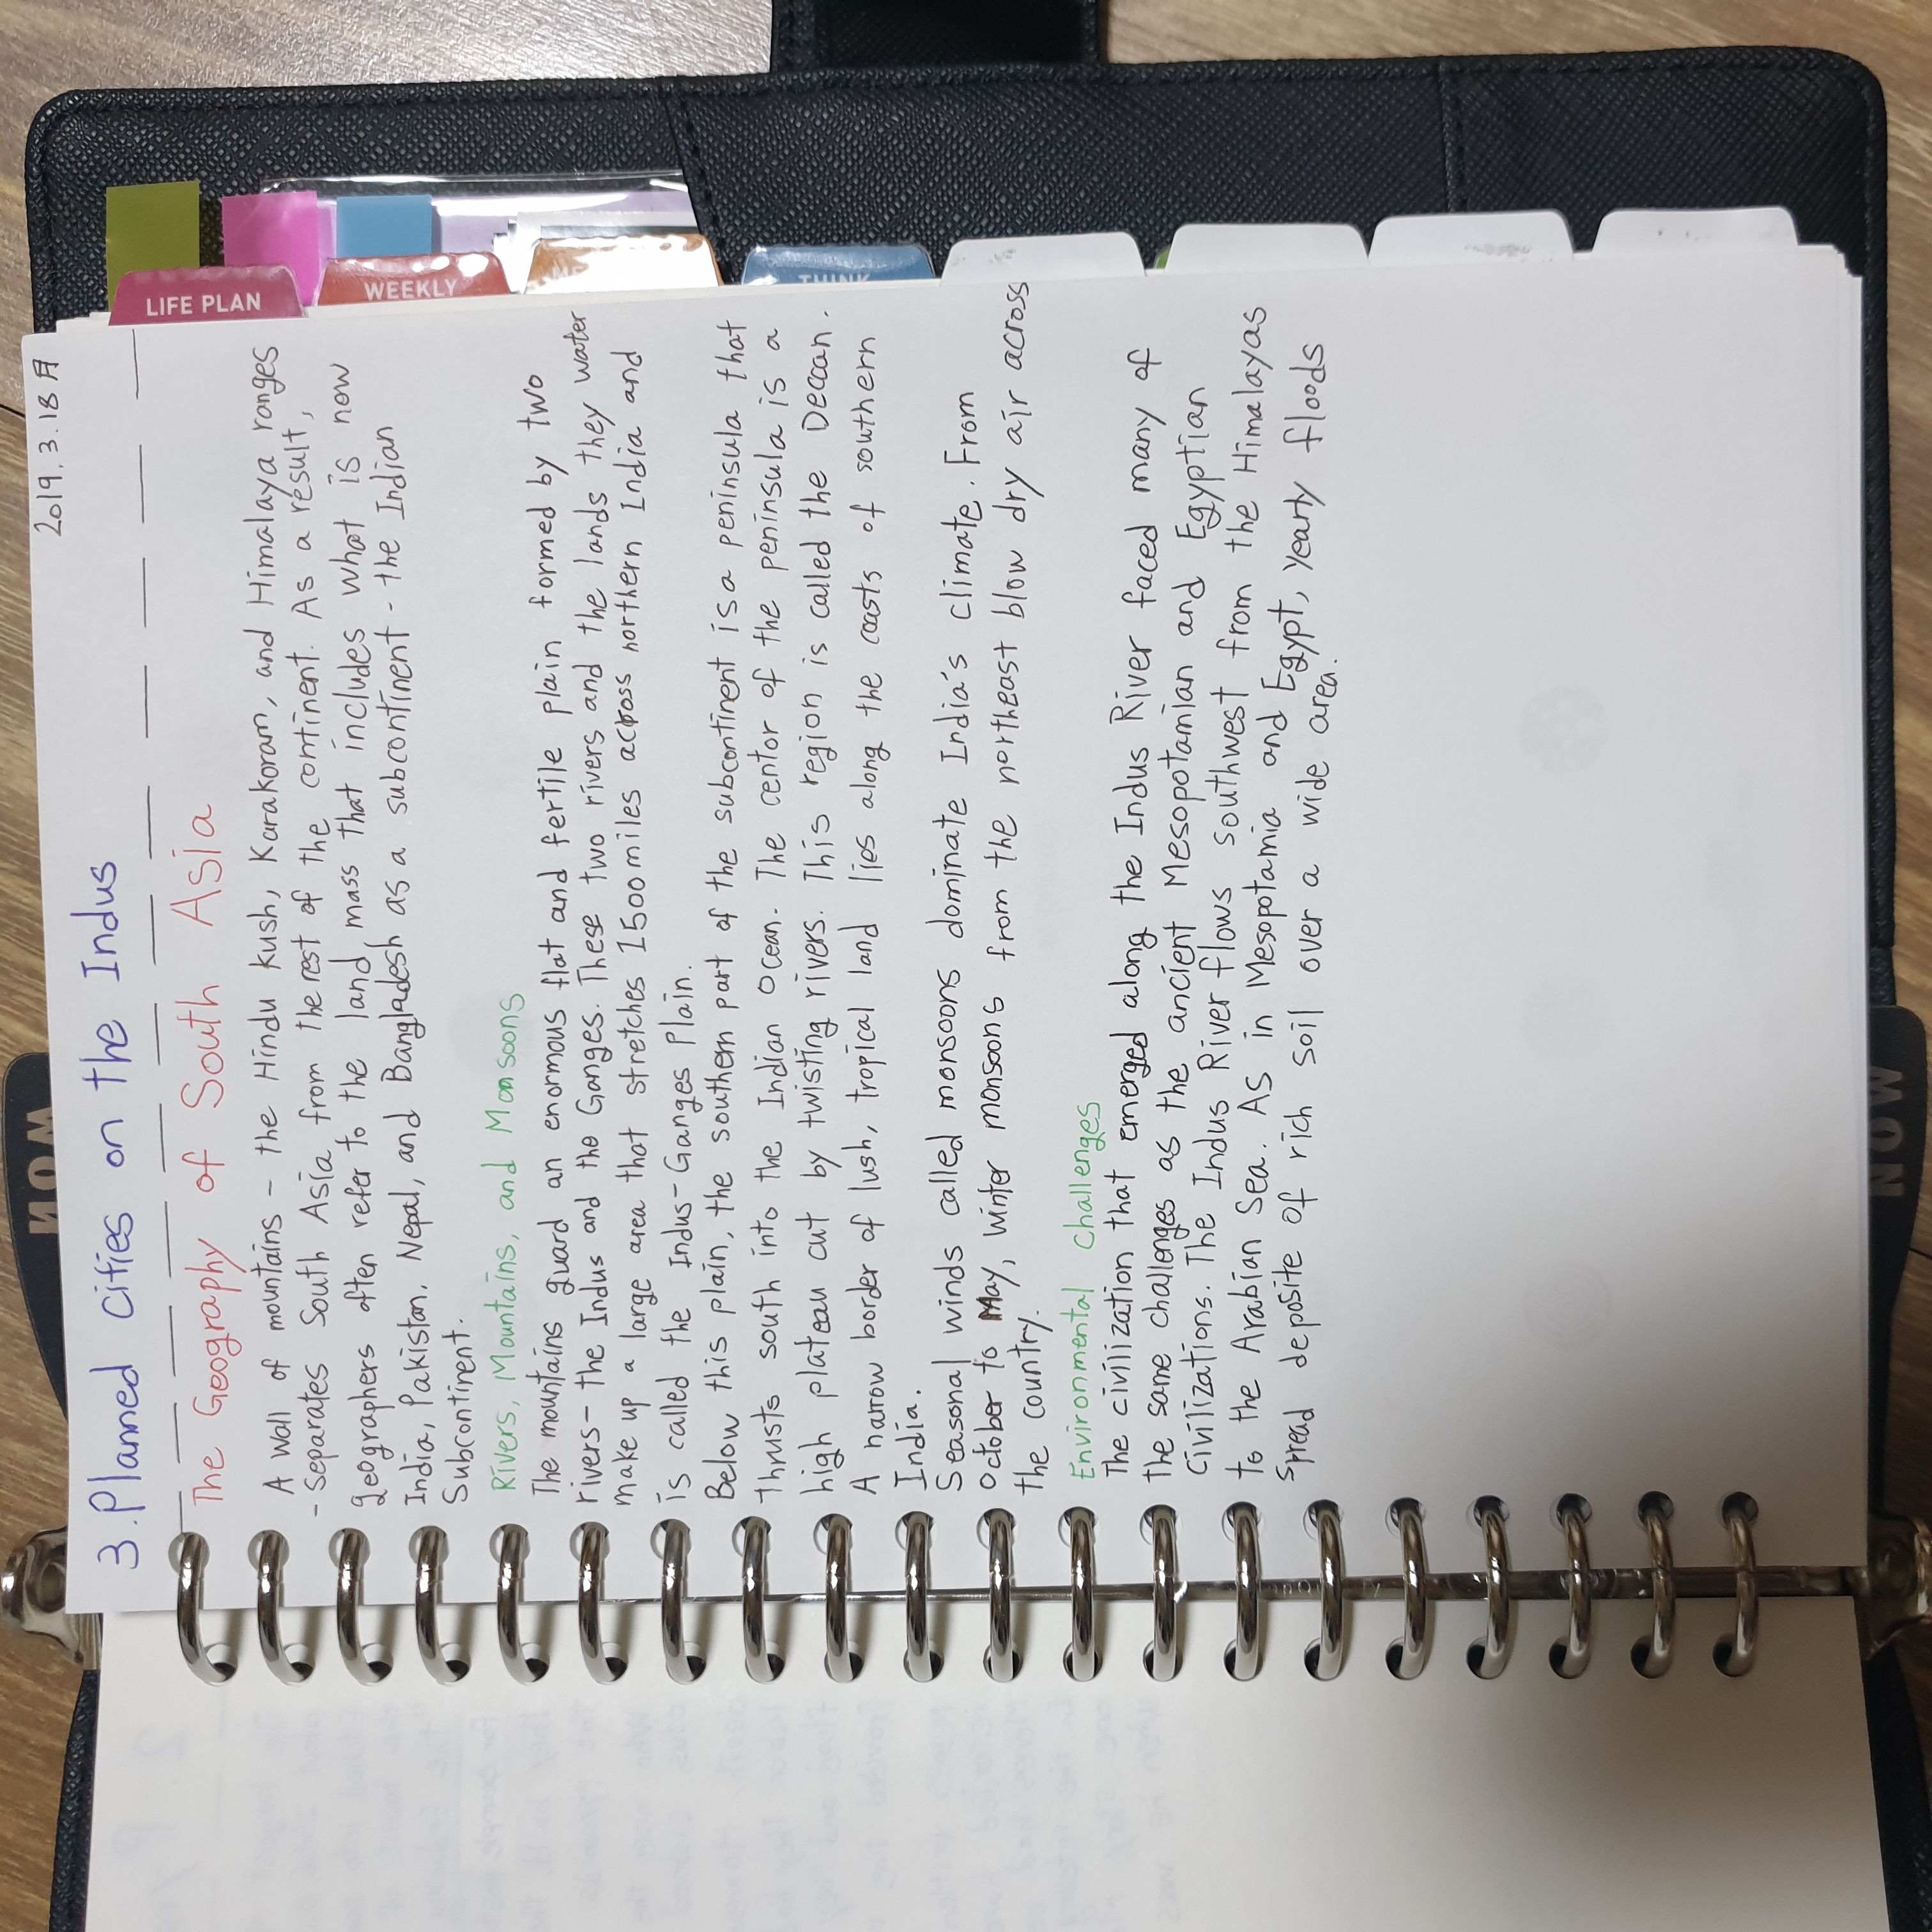 2019. 3. 18 月
3. Planned Cities on the Indus
The Geography of South Asia
A wall of mountains - the Hindu Kush, Karakoram, and Himalaya ranges
- Separates South Asia from the rest of the continent. As a result,
geographers often refer to the land mass that includes what is now
India, Pakistan, Nepal, and Bangladesh as a subcontinent - the Indian
Subcontinent.
Rivers, Mountains, and Monsoons
The mountains guard an enormous flat and fertile plain formed by two
rivers - the Indus and the Ganges. These two rivers and the lands they water
make up a large area that stretches 1500 miles across northern India and
is called the Indus-Ganges Plain.
Below this plain, the southern part of the subcontinent is a peninsula that
thrusts south into the Indian Ocean. The centor of the peninsula is a
high plateau cut by twisting rivers. This region is called the Deccan.
A narrow border of lush, tropical land lies along the coasts of southern
India.
Seasonal winds called monsoons dominate India's climate. From
October to May, winter monsoons from the northeast blow dry air across
the country.
Environmental Challenges
The civilization that emerged along the Indus River faced many of
the same challenges as the ancient Mesopotamian and Egyptian
Civilizations. The Indus River flows southwest from the Himalayas
to the Arabian Sea. As in Mesopotamia and Egypt, yearly floods
spread deposite of rich soil over a wide area.
LIFE PLAN
WEEKLY
THINK
NOW
NOW